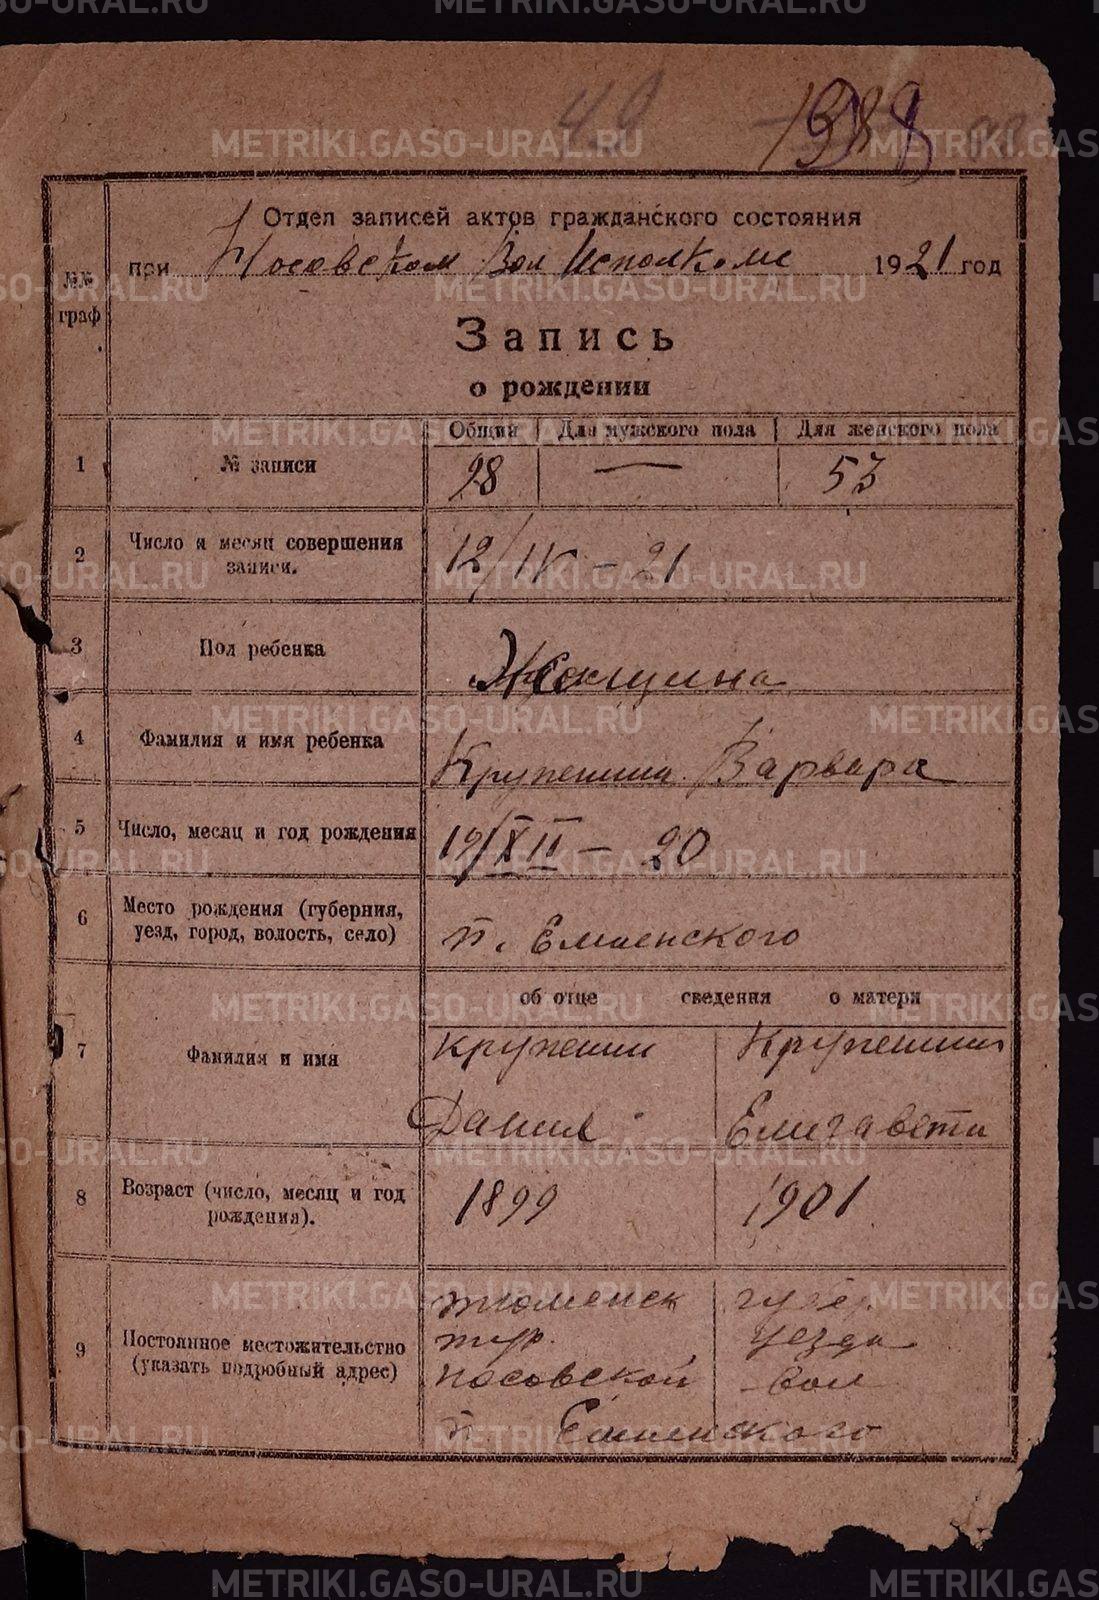 49 1988
Отдел записей актов гражданского состояния
при Носовском Вол Исполкоме 1921 год
№№ граф
Запись
о рождении
Общий Для мужского пола Для женского пола
1 № записи 98 — 53
2 Число и месяц совершения записи. 12/IV – 21
3 Пол ребенка Женщина
4 Фамилия и имя ребенка Крупенина Варвара
5 Число, месяц и год рождения 19/XII – 20
6 Место рождения (губерния, уезд, город, волость, село) п.
об отце сведения о матери
7 Фамилия и имя Крупенин Крупенина
Данил Елизавета
8 Возраст (число, месяц и год рождения). 1899 1901
9 Постоянное местожительство (указать подробный адрес) тюменск губер
тур. уезда
Носовской вол
п
METRIKI.GASO-URAL.RU